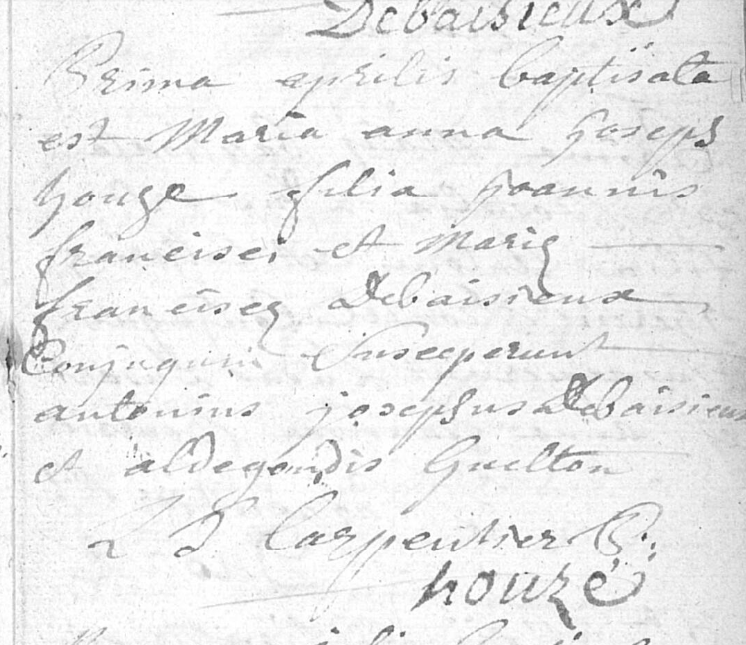 Debaisieux
Prima aprilis baptisata
est Maria anna joseph
houze filia joannis
francisci et Marię
francisçę Debaisieux
Conjugum Susceperunt
antonius josephus Debaisieux
et aldegondis Guelton
L J Carpentier P:
houzé